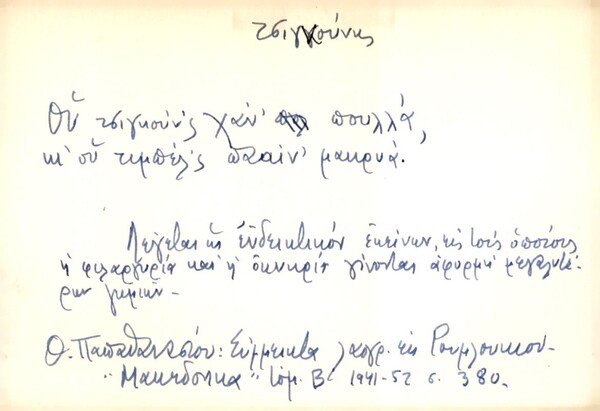 τσιγκούνης
Οὕ τσιγκούν'ς χάν' πουλλά,
κι' οὕ τιμπέλ'ς πααίν' μακρυά.
Λέγεται ὡς ἐνδεικτικόν ἐκείνων, εἰς τούς ὁποίους
ἡ φιλαργυρία καί ἡ ὀκνηρία γίνονται ἀφορμή μεγαλυτέ-
ρων ζημιῶν -
Θ. Παπαθανασίου: Σύμμεικτα λαογρ. ἐκ Ρουμλουκιοῦ -
"Μακεδονικα" τόμ. Β' 1941-52 σ. 380.